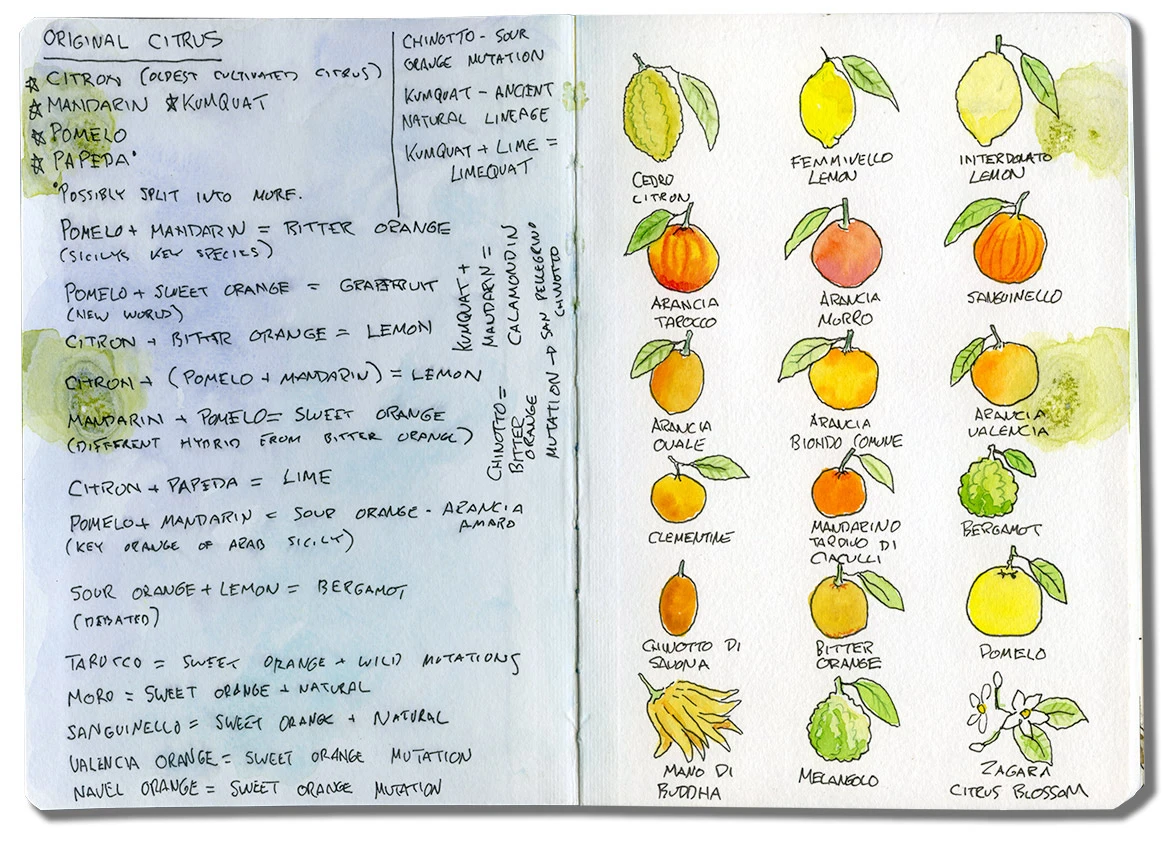 ORIGINAL CITRUS
☆ CITRON (OLDEST CULTIVATED CITRUS)
☆ MANDARIN ☆ KUMQUAT
☆ POMELO
☆ PAPEDA*
*POSSIBLY SPLIT INTO MORE.
CHINOTTO - SOUR
ORANGE MUTATION
KUMQUAT - ANCIENT
NATURAL LINEAGE
KUMQUAT + LIME =
LIMEQUAT
POMELO + MANDARIN = BITTER ORANGE
(SICILYS KEY SPECIES)
POMELO + SWEET ORANGE = GRAPEFRUIT
(NEW WORLD)
CITRON + BITTER ORANGE = LEMON
CITRON + (POMELO + MANDARIN) = LEMON
MANDARIN + POMELO = SWEET ORANGE
(DIFFERENT HYBRID FROM BITTER ORANGE)
CITRON + PAPEDA = LIME
POMELO + MANDARIN = SOUR ORANGE - ARANCIA
AMARO
(KEY ORANGE OF ARAB SICILY)
SOUR ORANGE + LEMON = BERGAMOT
(DEBATED)
TAROCCO = SWEET ORANGE + WILD MUTATIONS
MORO = SWEET ORANGE + NATURAL
SANGUINELLO = SWEET ORANGE + NATURAL
VALENCIA ORANGE = SWEET ORANGE MUTATION
NAVEL ORANGE = SWEET ORANGE MUTATION
KUMQUAT +
MANDARIN =
CALAMONDIN
CHINOTTO =
BITTER
ORANGE
MUTATION → SAN PELLEGRINO
CHINOTTO
CEDRO
CITRON
FEMMINELLO
LEMON
INTERDONATO
LEMON
ARANCIA
TAROCCO
ARANCIA
MORRO
SANGUINELLO
ARANCIA
OVALE
ARANCIA
BIONDO COMUNE
ARANCIA
VALENCIA
CLEMENTINE
MANDARINO
TARDIVO DI
CIACULLI
BERGAMOT
CHINOTTO DI
SAVONA
BITTER
ORANGE
POMELO
MANO DI
BUDDHA
MELANGOLO
ZAGARA
CITRUS BLOSSOM